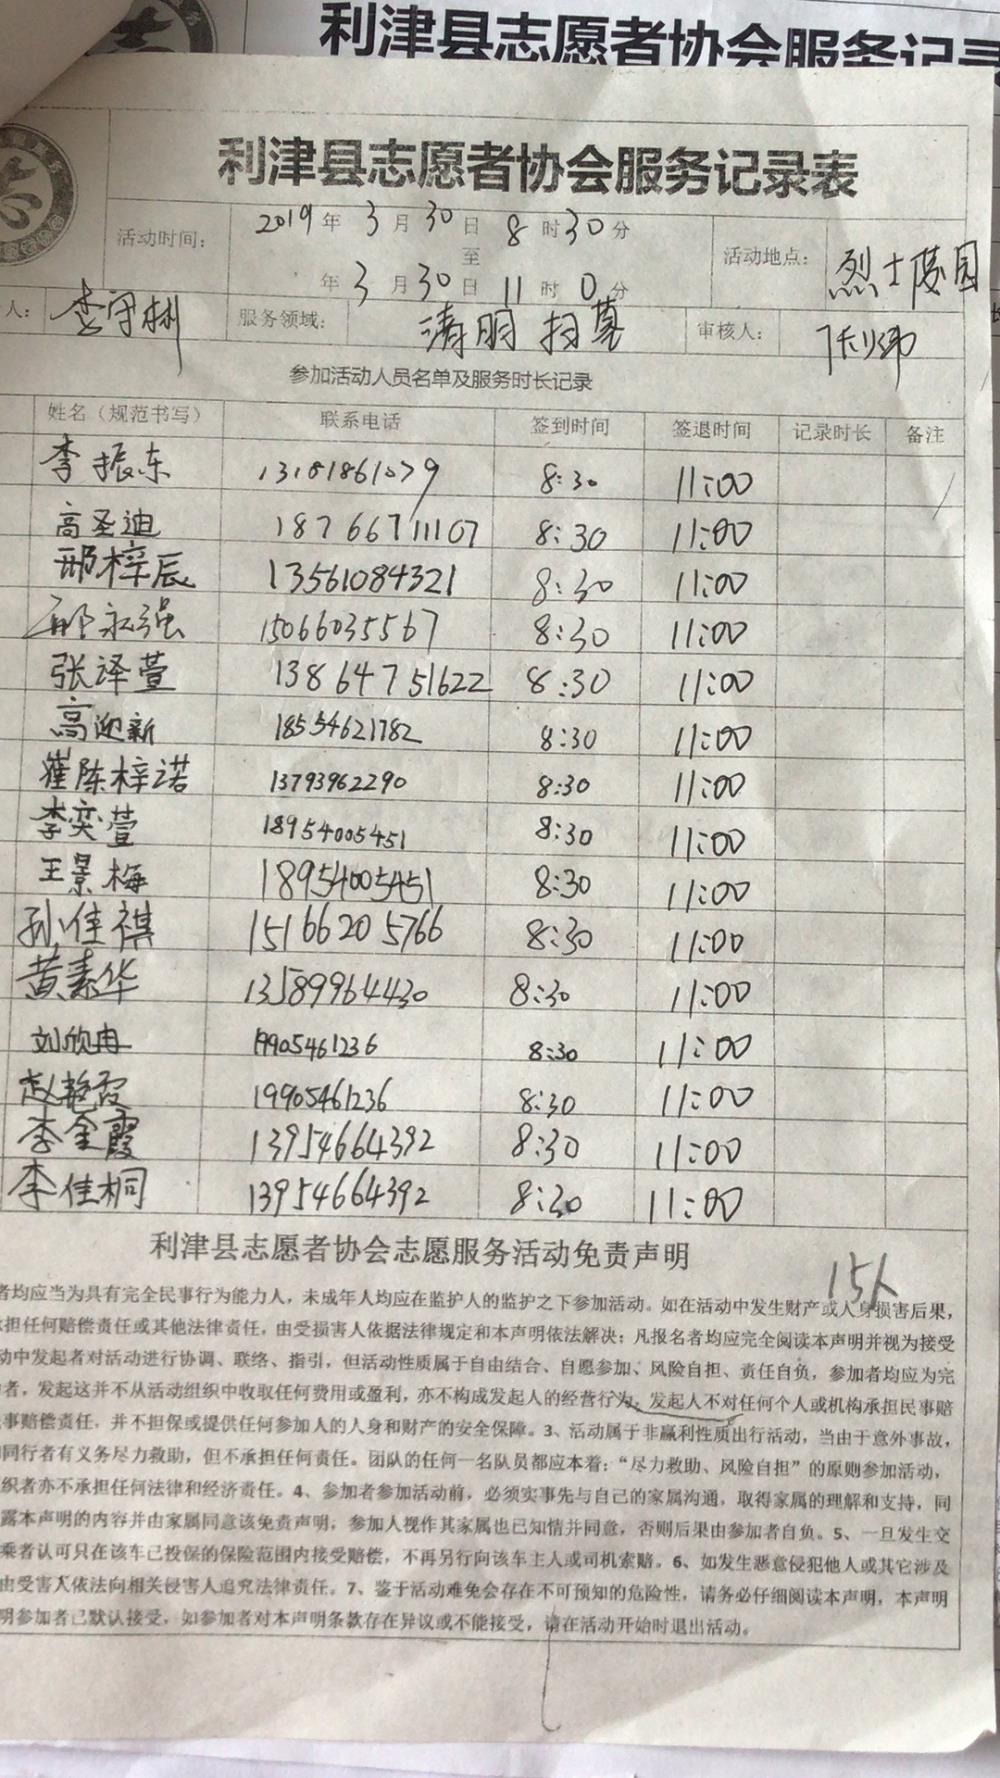 利津县志愿者协会服务记录
利津县志愿者协会服务记录表
活动时间： 2019年3月30日8时30分
至
年3月30日11时0分
活动地点： 烈士陵园
人： 李守彬 服务领域： 清明扫墓 审核人：
参加活动人员名单及服务时长记录
姓名（规范书写） 联系电话 签到时间 签退时间 记录时长 备注
李振东 13181861079 8:30 11:00
高圣迪 18766711107 8:30 11:00
邢梓辰 13561084321 8:30 11:00
邢永强 15066035567 8:30 11:00
张泽萱 13864751622 8:30 11:00
高迎新 18554621782 8:30 11:00
崔陈梓诺 13793962290 8:30 11:00
李奕萱 18954005451 8:30 11:00
王景梅 18954005451 8:30 11:00
孙佳祺 15166205766 8:30 11:00
黄素华 13589964430 8:30 11:00
刘欣冉 19905461236 8:30 11:00
赵艳霞 19905461236 8:30 11:00
李金霞 13954664392 8:30 11:00
李佳桐 13954664392 8:30 11:00
利津县志愿者协会志愿服务活动免责声明
15人
者均应当为具有完全民事行为能力人，未成年人均应在监护人的监护之下参加活动。如在活动中发生财产或人身损害后果，
担任何赔偿责任或其他法律责任，由受损害人依据法律规定和本声明依法解决；凡报名者均应完全阅读本声明并视为接受
动中发起者对活动进行协调、联络、指引，但活动性质属于自由结合、自愿参加、风险自担、责任自负，参加者均应为完
者，发起这并不从活动组织中收取任何费用或盈利，亦不构成发起人的经营行为，发起人不对任何个人或机构承担民事赔
事赔偿责任，并不担保或提供任何参加人的人身和财产的安全保障。3、活动属于非赢利性质出行活动，当由于意外事故，
同行者有义务尽力救助，但不承担任何责任。团队的任何一名队员都应本着：“尽力救助、风险自担”的原则参加活动，
织者亦不承担任何法律和经济责任。4、参加者参加活动前，必须实事先与自己的家属沟通，取得家属的理解和支持，同
露本声明的内容并由家属同意该免责声明，参加人视作其家属也已知情并同意，否则后果由参加者自负。5、一旦发生交
乘者认可只在该车已投保的保险范围内接受赔偿，不再另行向该车主人或司机索赔。6、如发生恶意侵犯他人或其它涉及
由受害人依法向相关侵害人追究法律责任。7、鉴于活动难免会存在不可预知的危险性，请务必仔细阅读本声明，本声明
明参加者已默认接受，如参加者对本声明条款存在异议或不能接受，请在活动开始时退出活动。